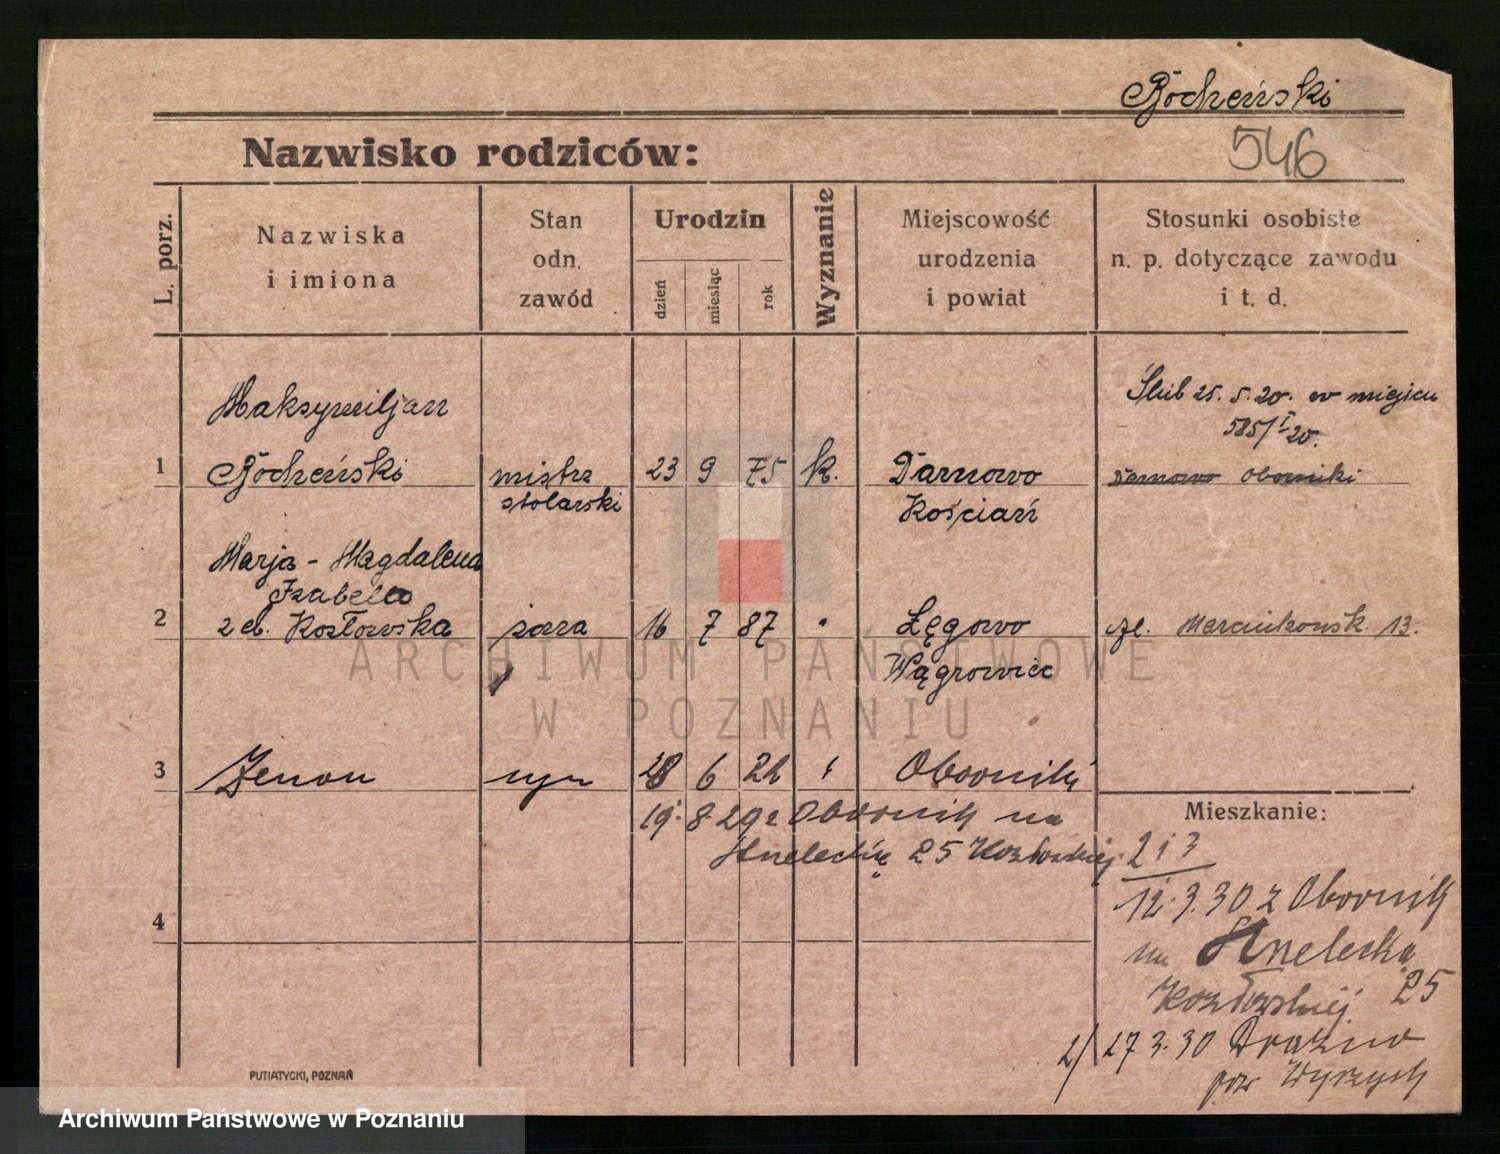 Bocheński
546
Nazwisko rodziców:
L. porz.
Nazwiska
i imiona
Stan
odn.
zawód
Urodzin
dzień
miesiąc
rok
Wyznanie
Miejscowość
urodzenia
i powiat
Stosunki osobiste
n. p. dotyczące zawodu
i t. d.
Maksymiljan
Ślub 25. 5. 20. w miejscu
585/I 20.
1 Bocheński mistrz 23 9 75 k. Darnowo Darnowo Oborniki
stolarski Kościan
Marja - Magdalena
Izabella
2 z d. Kozłowska żona 16 7 87 " Łęgowo Marcinkowsk. 13.
Wągrowiec
3 Zenon syn 28 6 22 Oborniki
19. 8. 29 z Obornik na
25 Kozłowskiej
Mieszkanie:
2 i 3
12. 3. 30 z Obornik
na
Kozłowskiej 25
4
2/ 27 3. 30
pow Wyrzysk
PUTIATYCKI, POZNAŃ
ARCHIWUM PAŃSTWOWE
W POZNANIU
Archiwum Państwowe w Poznaniu